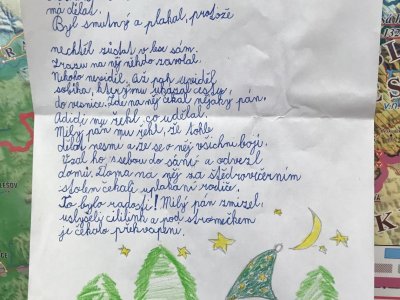 má dělat.
Byl smutný a plakal, protože
nechtěl zůstat v lese sám.
Zrazu na něj někdo zavolal.
Nikoho neviděl. Až pak uviděl
sobíka, který mu ukázal cestu
do vesnice. Zde na něj čekal nějaký pán.
Adidi mu řekl, co udělal.
Milý pán mu řekl, že tohle
dělat nesmí a že se o něj všichni bojí.
Vzal ho s sebou do sání a odvezl
domů. Doma na něj za štědrovečerním
stolem čekali uplakaní rodiče.
To bylo radosti! Milý pán zmizel.
uslyšeli cililink a pod stromečkem
je čekalo překvapení.